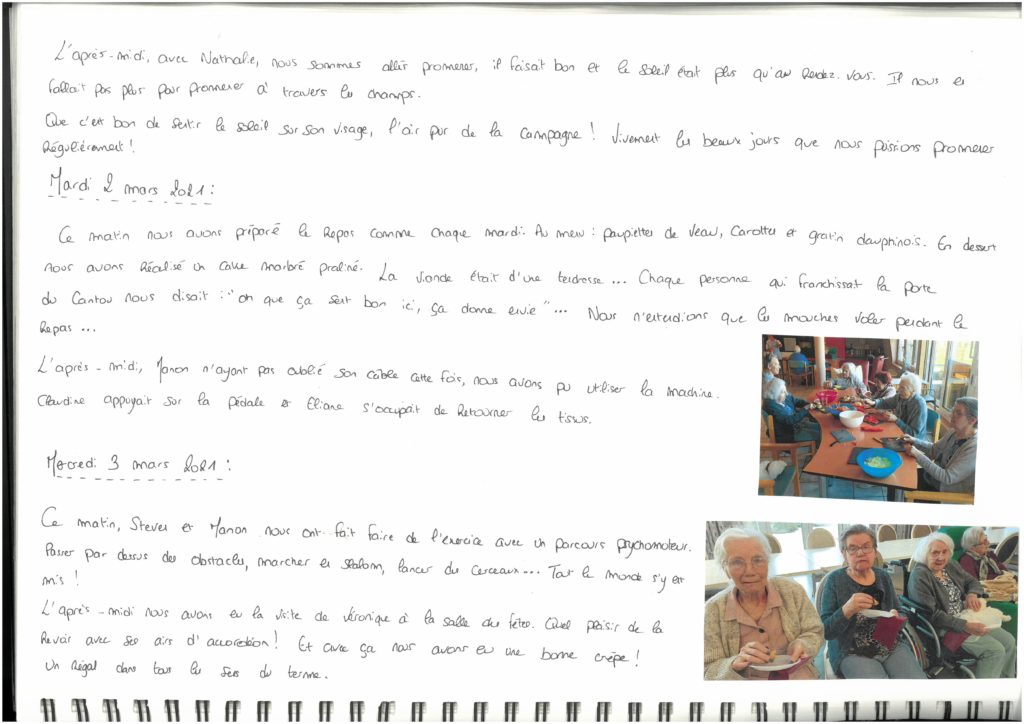 L'après-midi, avec Nathalie, nous sommes allés promener, il faisait bon et le soleil était plus qu'au Rendez-vous. Il nous en
fallait pas plus pour promener à travers les champs.
Que c'est bon de sentir le soleil sur son visage, l'air pur de la campagne ! Vivement les beaux jours que nous puissions promener
Régulièrement !
Mardi 2 mars 2021 :
Ce matin nous avons préparé le Repas comme chaque mardi. Au menu : paupiettes de veau, carottes et gratin dauphinois. En dessert
nous avons Réalisé un cake marbré praliné. La viande était d'une tendresse... Chaque personne qui franchissait la porte
du Cantou nous disait : "oh que ça sent bon ici, ça donne envie"... Nous n'entendions que les mouches voler pendant le
Repas...
L'après-midi, Manon n'ayant pas oublié son câble cette fois, nous avons pu utiliser la machine.
Claudine appuyait sur la pédale et Eliane s'occupait de Retourner les tissus.
Mercredi 3 mars 2021 :
Ce matin, Steven et Manon nous ont fait faire de l'exercice avec un parcours psychomoteur.
Passer par dessus des obstacles, marcher en slalom, lancer des cerceaux... Tout le monde s'y est
mis !
L'après-midi nous avons eu la visite de Véronique à la salle des fêtes. Quel plaisir de la
Revoir avec ses airs d'accordéon ! Et avec ça nous avons eu une bonne crêpe !
Un Régal dans tous les sens du terme.